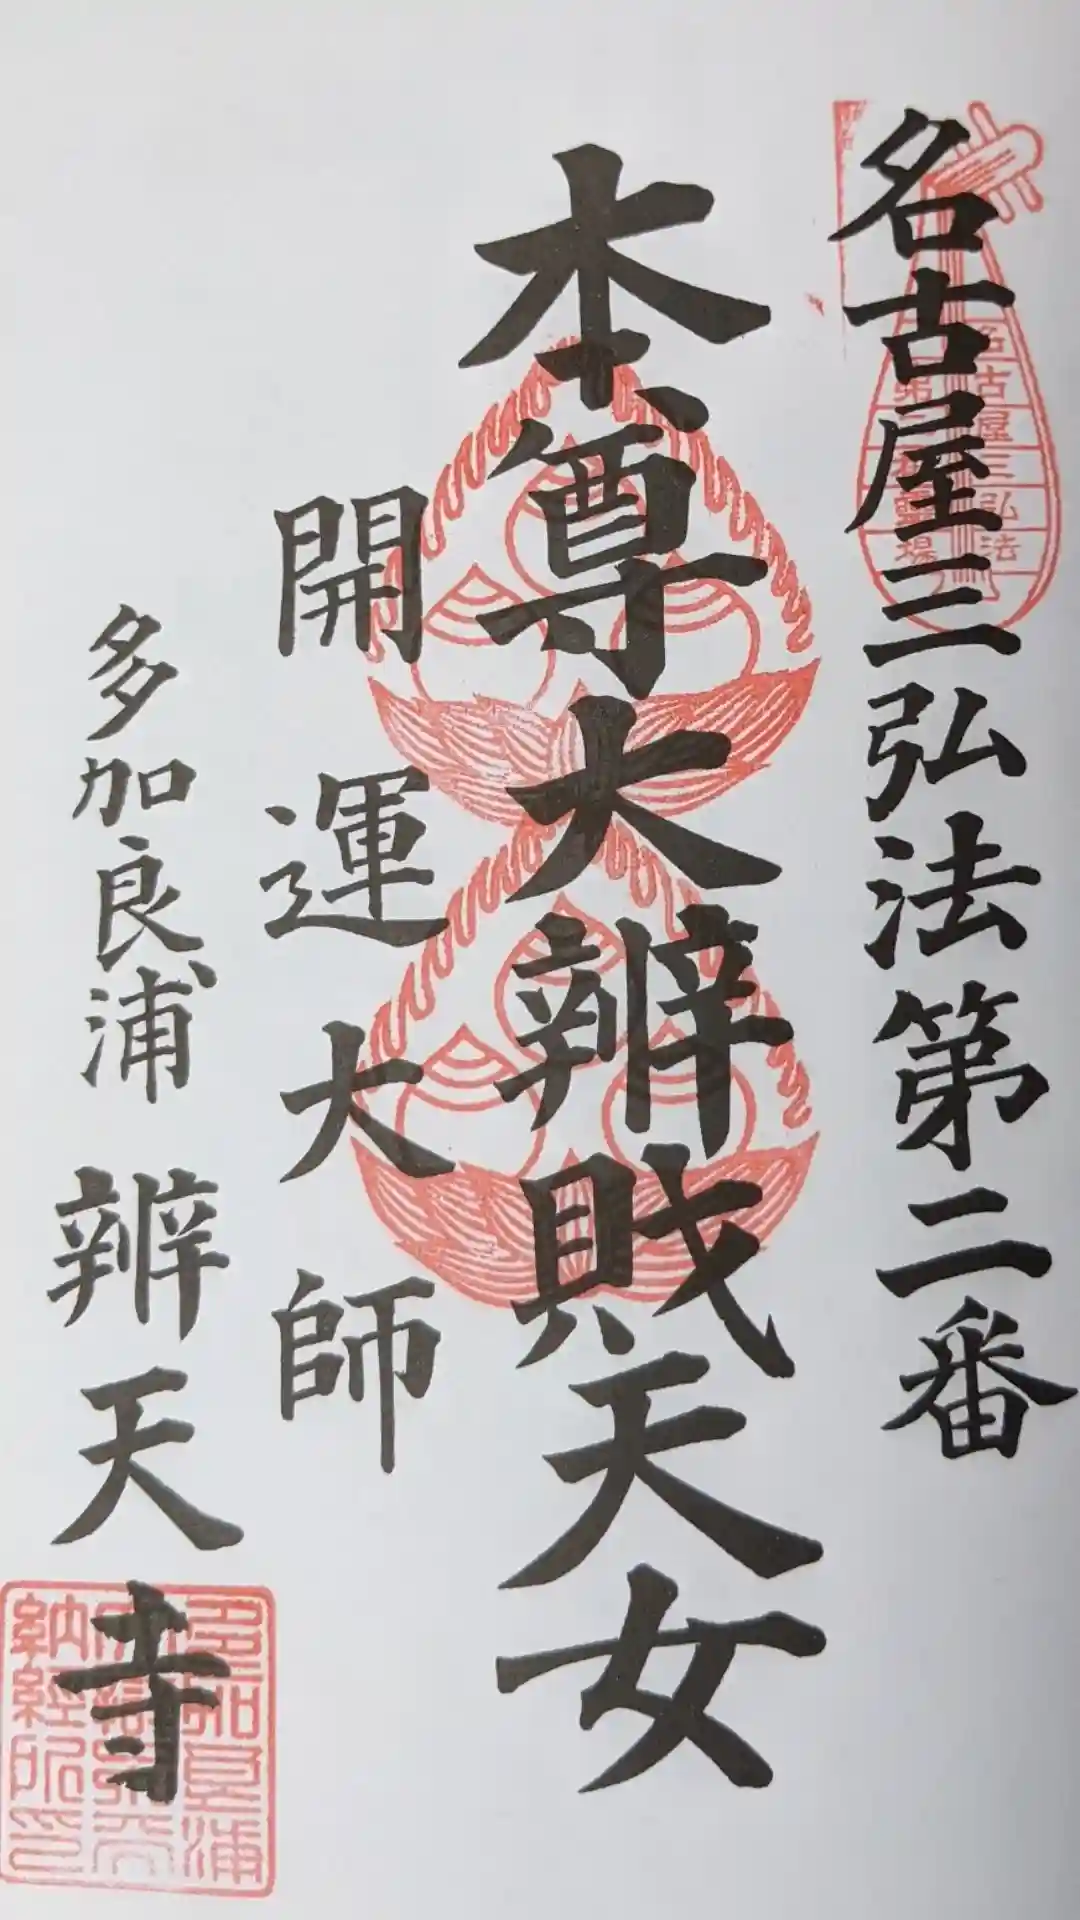 名古屋三弘法第二番
名古屋三弘法
本尊大辨財天女
開運大師
多加良浦 辨天寺
多加良浦
納経所印